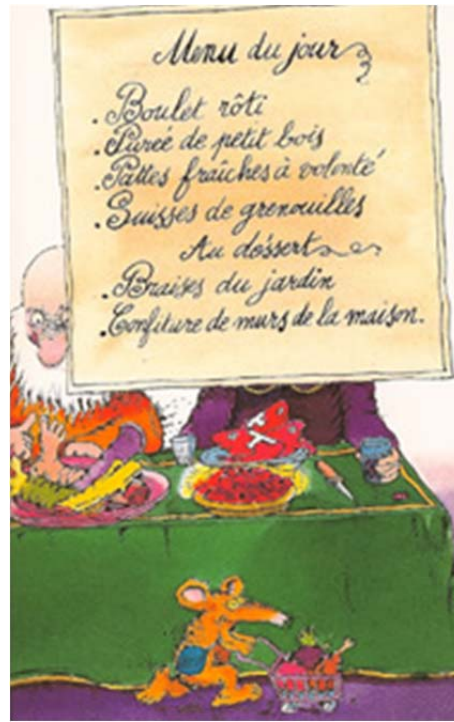 Menu du jour
. Boulet rôti
. Pureé de petit bois
. Pattes fraîches à volonté
. Suisses de grenouilles
Au dossert
. Braises du jardin
. Confiture de murs de la maison.